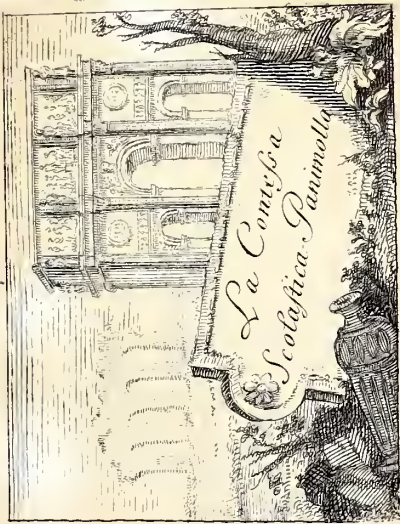 La Contessa
Scolastica Panimolla